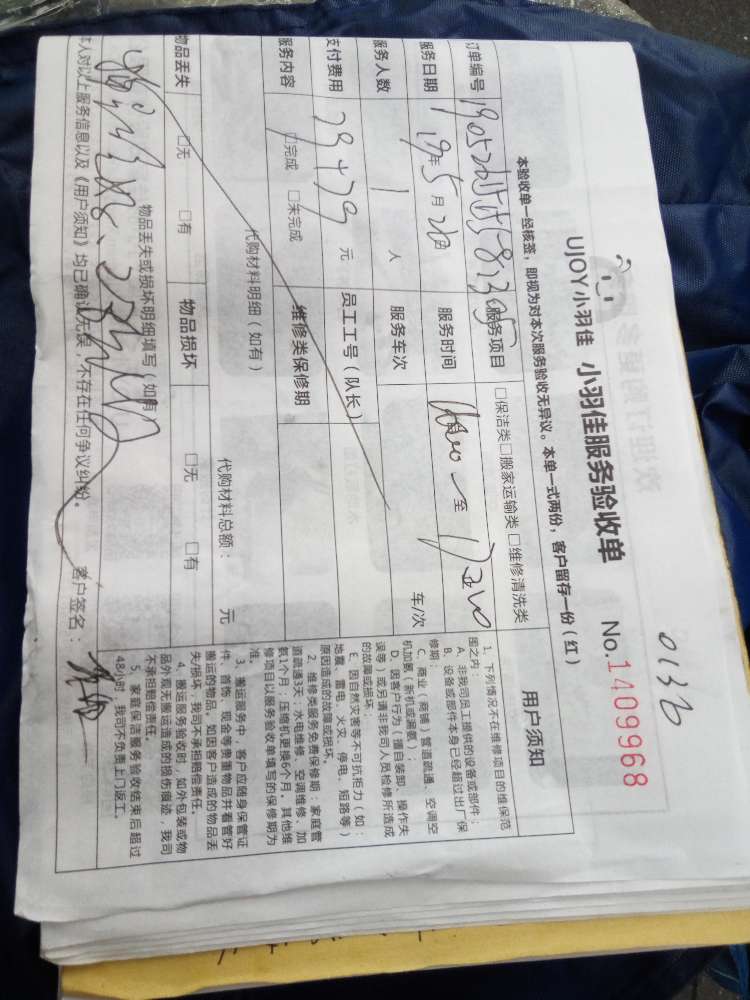 0136
UJOY小羽佳 小羽佳服务验收单 No.1409968
本验收单一经核签，即视为对本次服务验收无异议。本单一式两份，客户留存一份（红）
订单编号 服务项目 □保洁类□搬家运输类□维修清洗类
服务日期 19年5月26日 服务时间 至
服务人数 1 人 服务车次 车/次
支付费用 元 员工工号（队长）
服务内容 □完成 □未完成 维修类保修期
代购材料明细（如有） 代购材料总额： 元
物品丢失 □无 □有 物品损坏 □无 □有
物品丢失或损坏明细填写（如有
本人对以上服务信息以及《用户须知》均已确认无误，不存在任何争议纠纷。 客户签名：
用户须知
1、下列情况不在维修项目的维保范
围之内：
A、非我司员工提供的设备或部件；
B、设备或部件本身已经超过出厂保
修期；
C、商业（商铺）管道疏通、空调空
机加氨（新机或漏氨）；
D、因客户行为（擅自装卸、操作失
误等）或另请非我司人员检修所造成
的故障或损坏；
E、因自然灾害等不可抗拒力（如：
地震、雷电、火灾、停电、短路等）
原因造成的故障或损坏。
2、维修类服务免费保修期：家庭管
道疏通3天；水电维修、空调维修、加
氨1个月；压缩机更换6个月。其他维
修项目以服务验收单填写的保修期为
准。
3、搬运服务中，客户应随身保管证
件、首饰、现金等贵重物品并看管好
搬运的物品，如因客户造成的物品丢
失/损坏，我司不承担赔偿责任。
4、搬运服务验收时，如外包装或物
品外观无搬运造成的损伤痕迹，我司
不承担赔偿责任。
5、家庭保洁服务验收结束后超过
48小时，我司不负责上门返工。